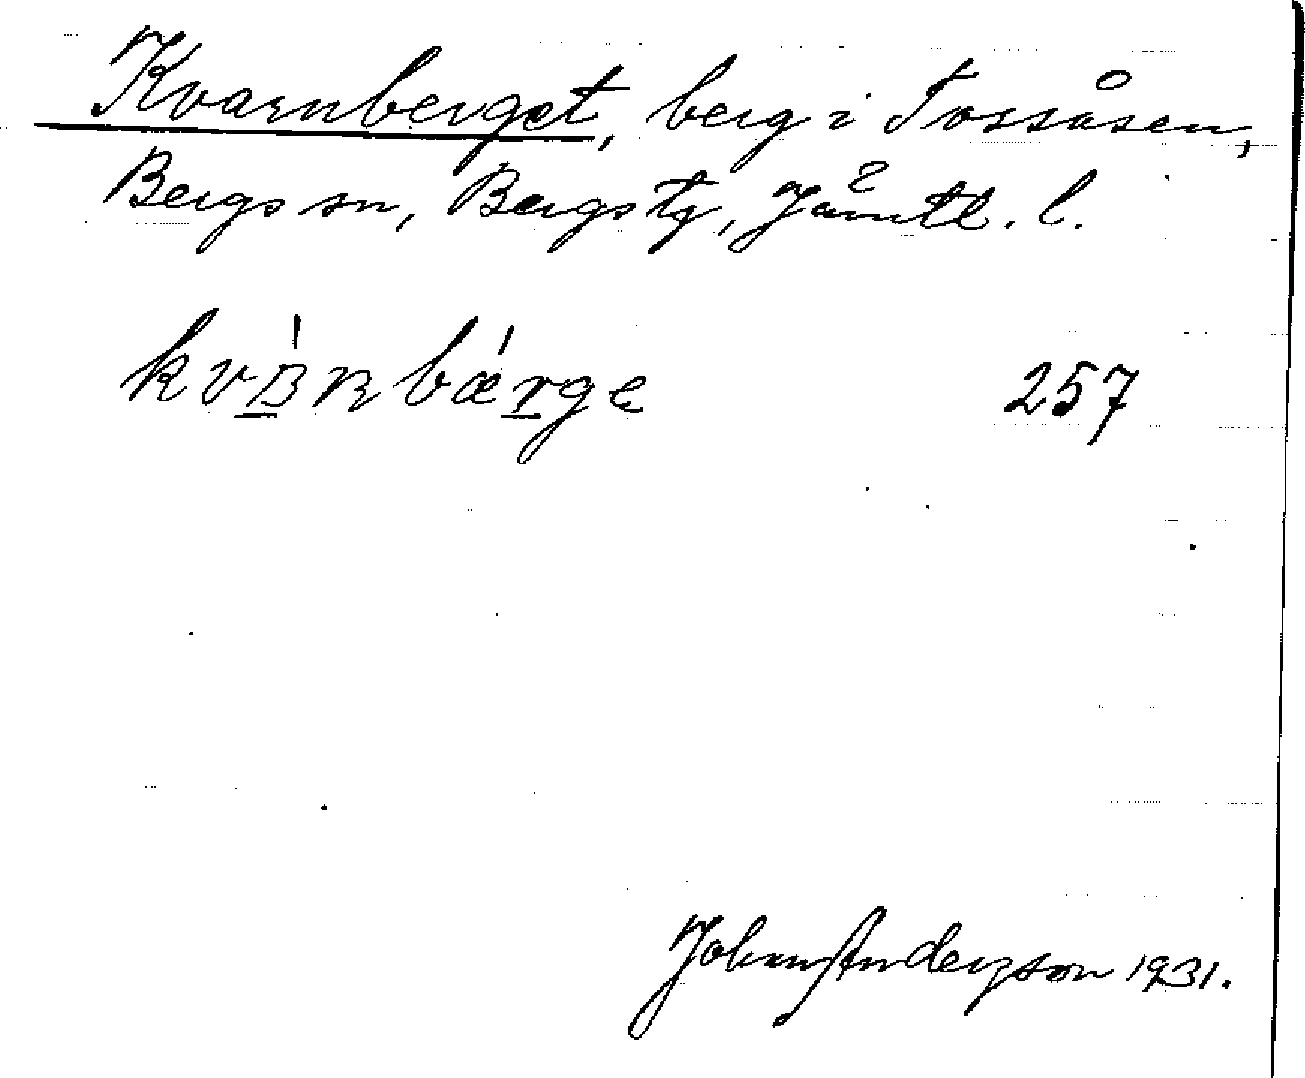 Kvarnberget, berg i Tossåsen,
Bergs sn, Bergs tg, Jämtl. l.
257
Johan Anderzson 1931.